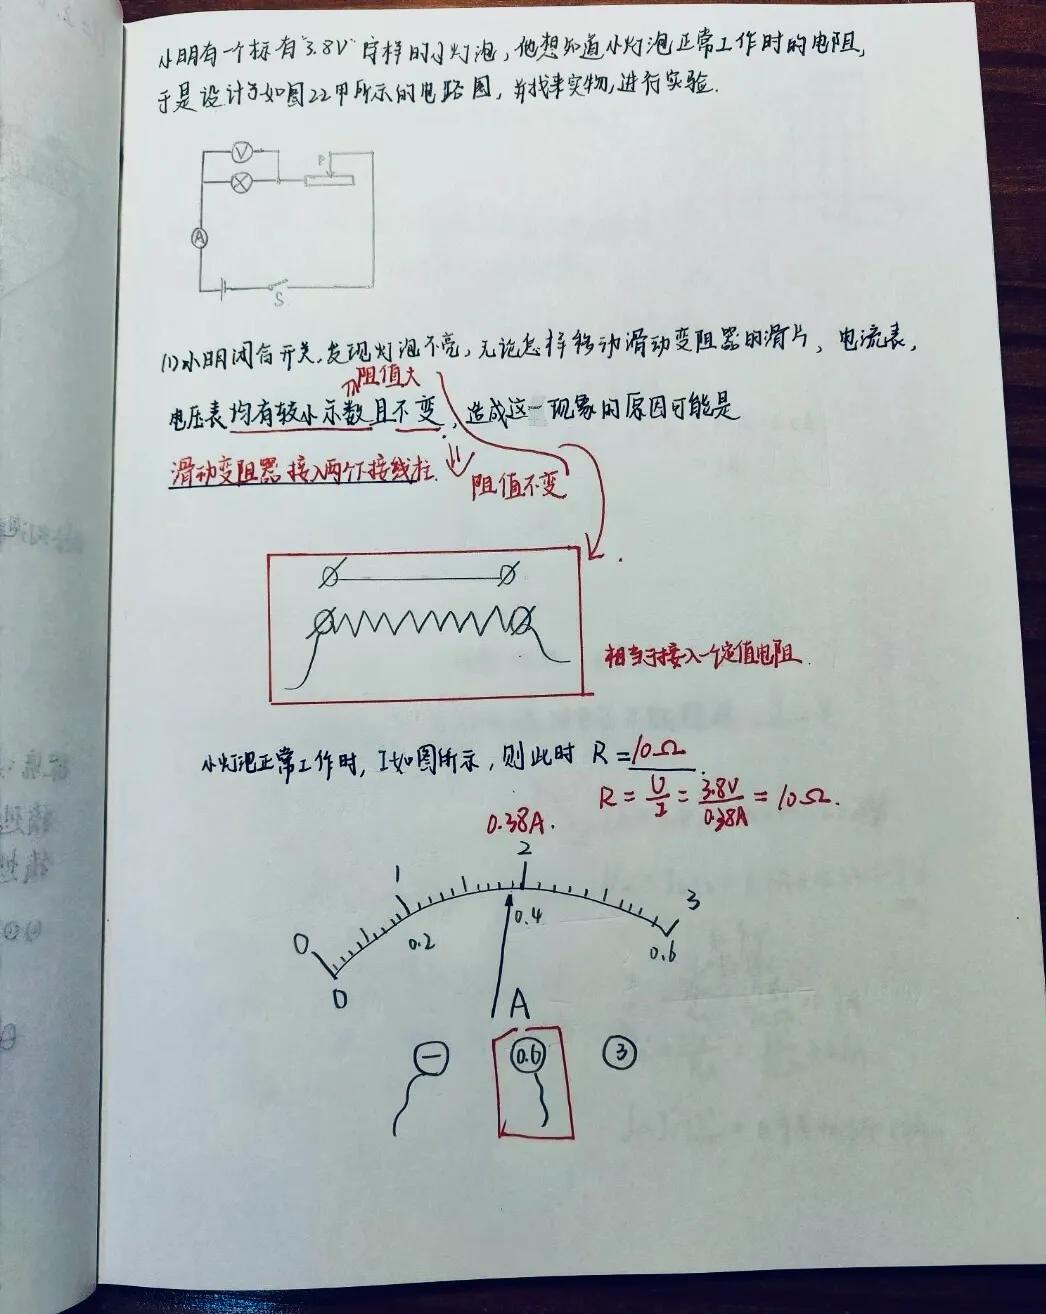 小明有一个标有"3.8V"字样的小灯泡，他想知道小灯泡正常工作时的电阻，
于是设计了如图22甲所示的电路图，并找来实物，进行实验．
V
P
A
S
(1)小明闭合开关，发现灯泡不亮，无论怎样移动滑动变阻器的滑片，电流表，
阻值大
电压表均有较小示数且不变，造成这一现象的原因可能是
滑动变阻器接入两个下接线柱．
阻值不变
相当于接入一个定值电阻．
小灯泡正常工作时，I如图所示，则此时 R=10Ω
R=U/I=3.8V/0.38A=10Ω．
0.38A．
0 1 2 3
0 0.2 0.4 0.6
A
— 0.6 3